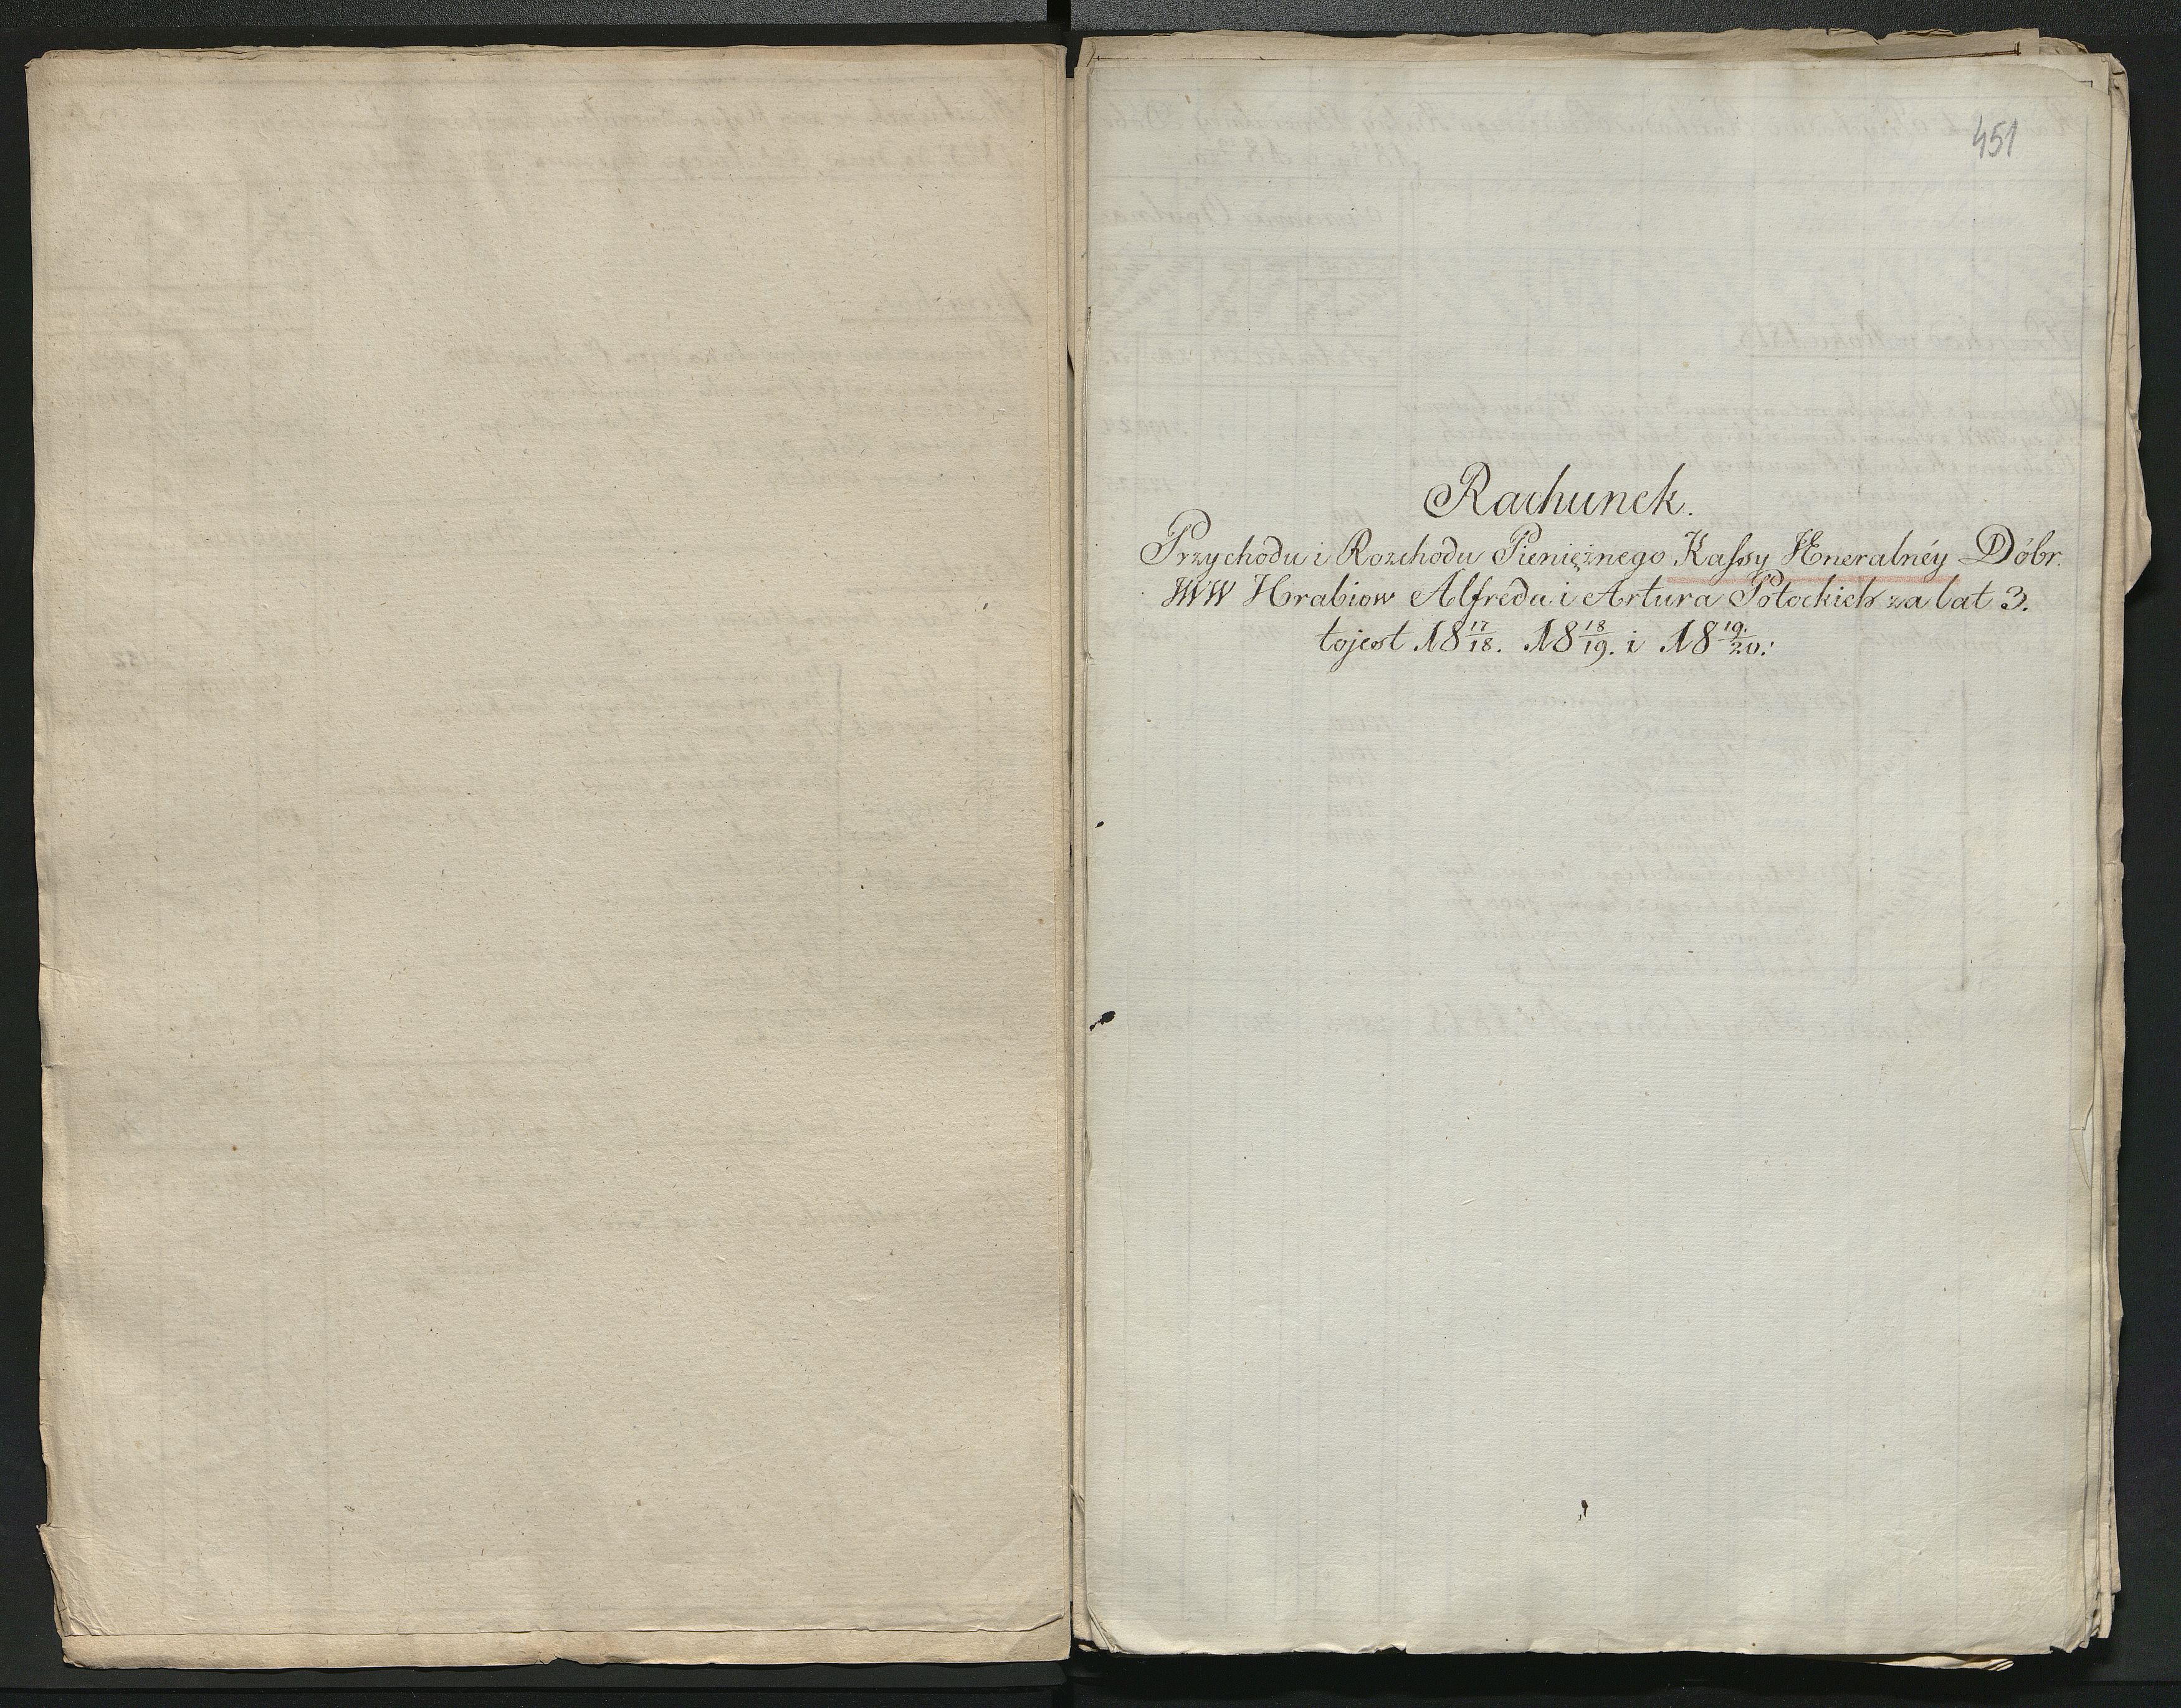 451
Rachunek.
Przychodu i Rozchodu Pieniężnego Kassy Jeneralnéy Dóbr.
JWW Hrabiow Alfreda i Artura Potockich za lat 3.
tojest 18 17/18. 18 18/19. i 18 19/20.